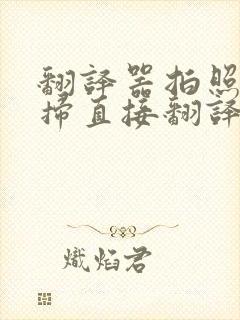 翻譯器拍照
掃直接翻譯
熾焰君